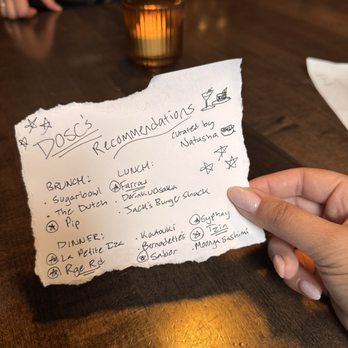 DOSC's
Recommendations
curated by
Natasha
BRUNCH:
Sugarbowl
The Dutch
Pip
LUNCH:
Farrow
DorinkuOsaka
Jack's Burger Shack
DINNER:
La Petite Iza
Rge Rd
Koutouki
Bernadette's
Sabor
Syphay
Izin
Moonga Sashimi